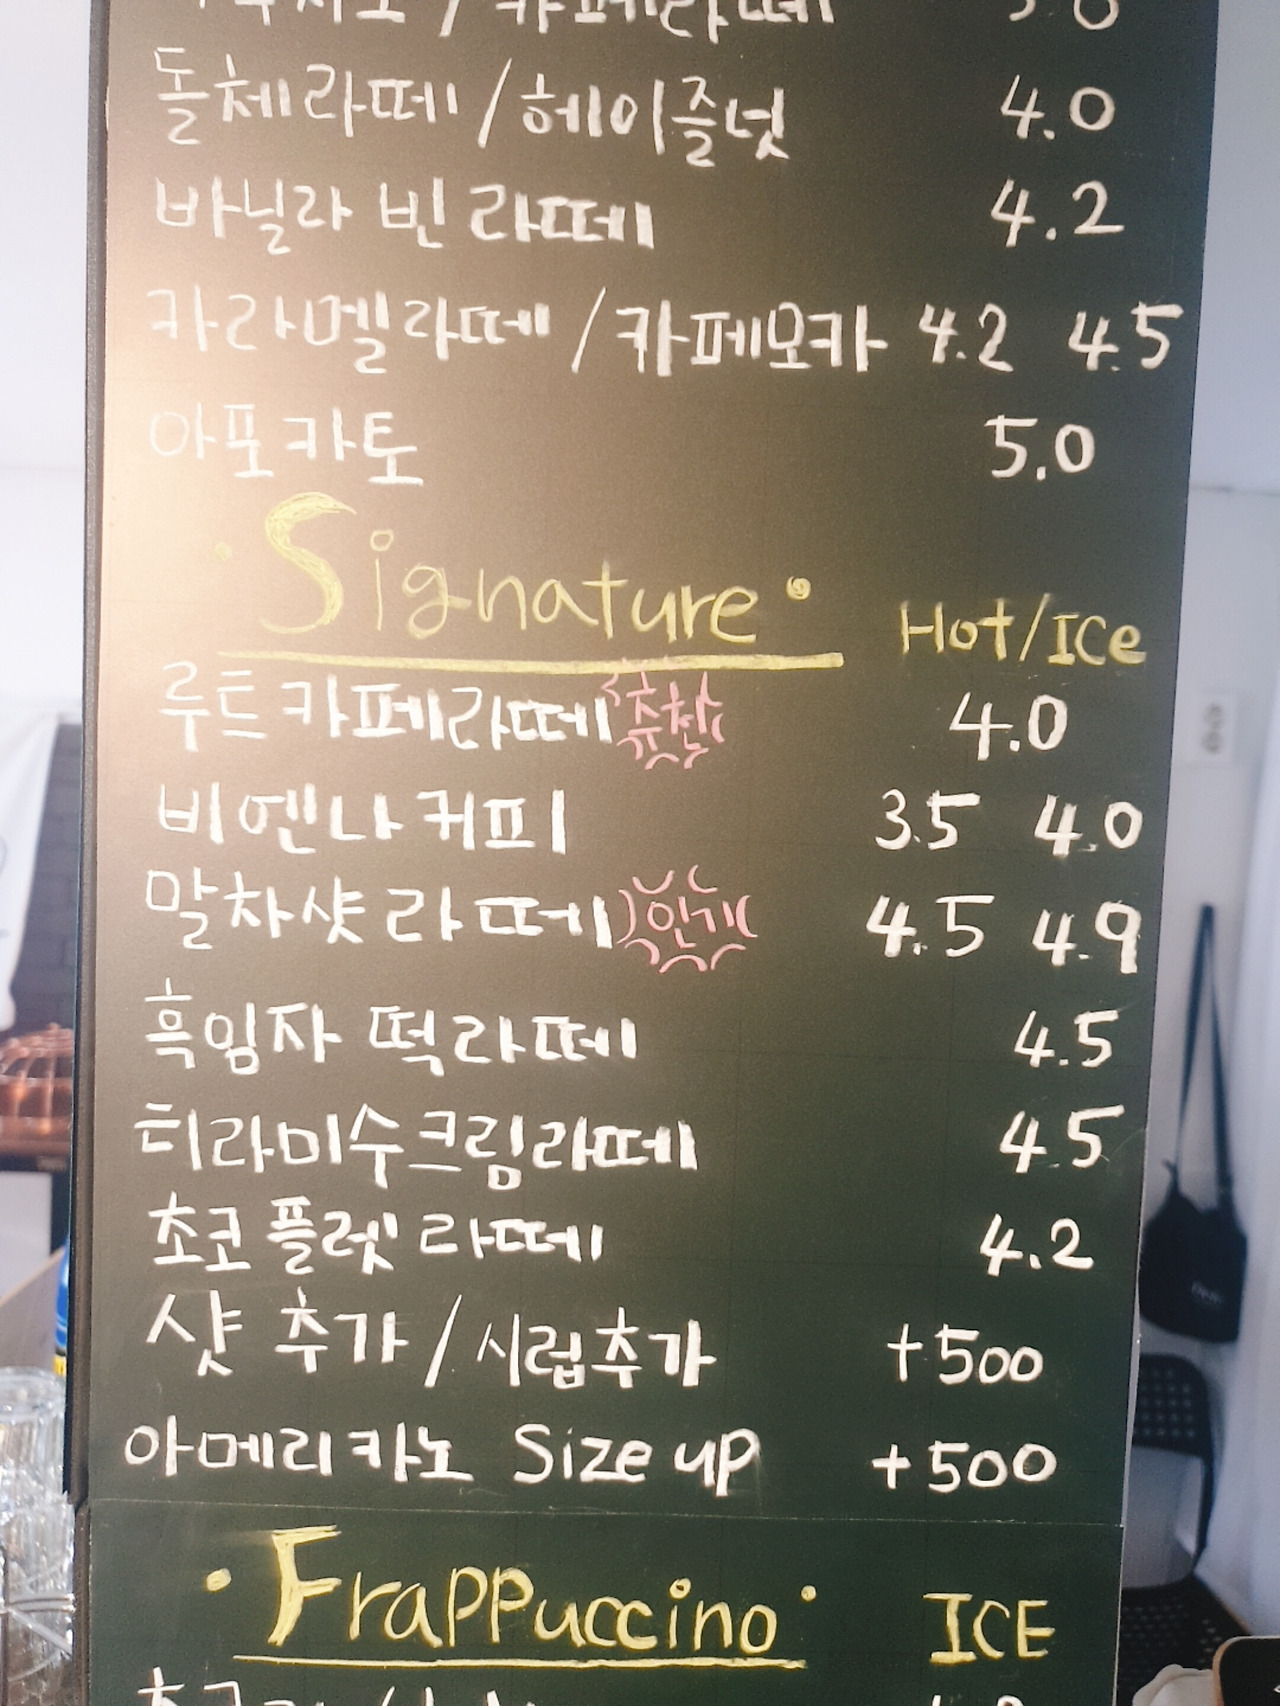 카페라떼
돌체라떼/헤이즐넛 4.0
바닐라 빈 라떼 4.2
카라멜라떼/카페모카 4.2 4.5
아포카토 5.0
· Signature · Hot/ICe
루트카페라떼 추천 4.0
비엔나커피 3.5 4.0
말차샷라떼 인기 4.5 4.9
흑임자 떡라떼 4.5
티라미수크림라떼 4.5
초코플렛라떼 4.2
샷 추가/시럽추가 +500
아메리카노 Size up +500
· Frappuccino · ICE